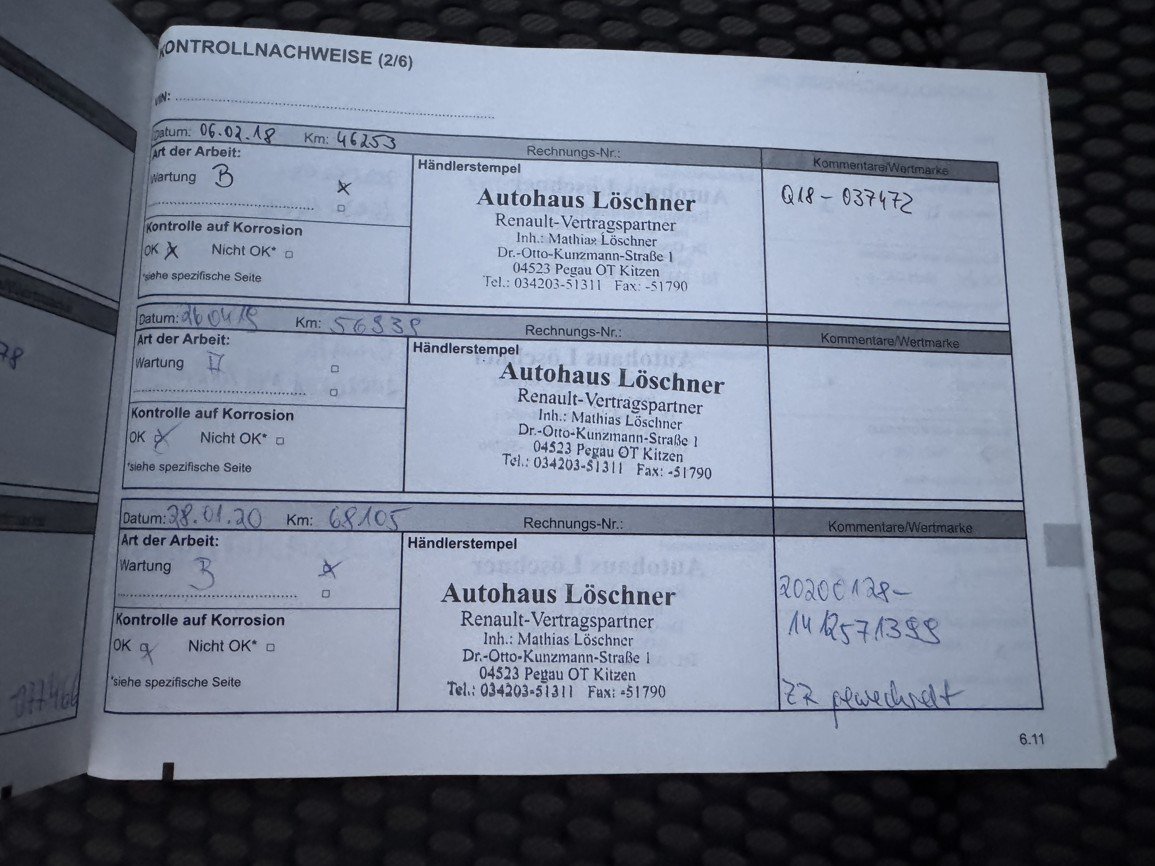 KONTROLLNACHWEISE (2/6)
VIN:
Datum: 06.02.18 Km: 46253 Rechnungs-Nr.: Kommentare/Wertmarke
Art der Arbeit:
Wartung B
Kontrolle auf Korrosion
OK Nicht OK*
*siehe spezifische Seite
Händlerstempel
Autohaus Löschner
Renault-Vertragspartner
Inh.: Mathias Löschner
Dr.-Otto-Kunzmann-Straße 1
04523 Pegau OT Kitzen
Tel.: 034203-51311 Fax: -51790
Q18-037472
Datum: 260419 Km: 56939 Rechnungs-Nr.: Kommentare/Wertmarke
Art der Arbeit:
Wartung
Kontrolle auf Korrosion
OK Nicht OK*
*siehe spezifische Seite
Händlerstempel
Autohaus Löschner
Renault-Vertragspartner
Inh.: Mathias Löschner
Dr.-Otto-Kunzmann-Straße 1
04523 Pegau OT Kitzen
Tel.: 034203-51311 Fax: -51790
Datum: 28.01.20 Km: 68105 Rechnungs-Nr.: Kommentare/Wertmarke
Art der Arbeit:
Wartung B
Kontrolle auf Korrosion
OK Nicht OK*
*siehe spezifische Seite
Händlerstempel
Autohaus Löschner
Renault-Vertragspartner
Inh.: Mathias Löschner
Dr.-Otto-Kunzmann-Straße 1
04523 Pegau OT Kitzen
Tel.: 034203-51311 Fax: -51790
20200128-
1412571399
ZR gewechselt
6.11